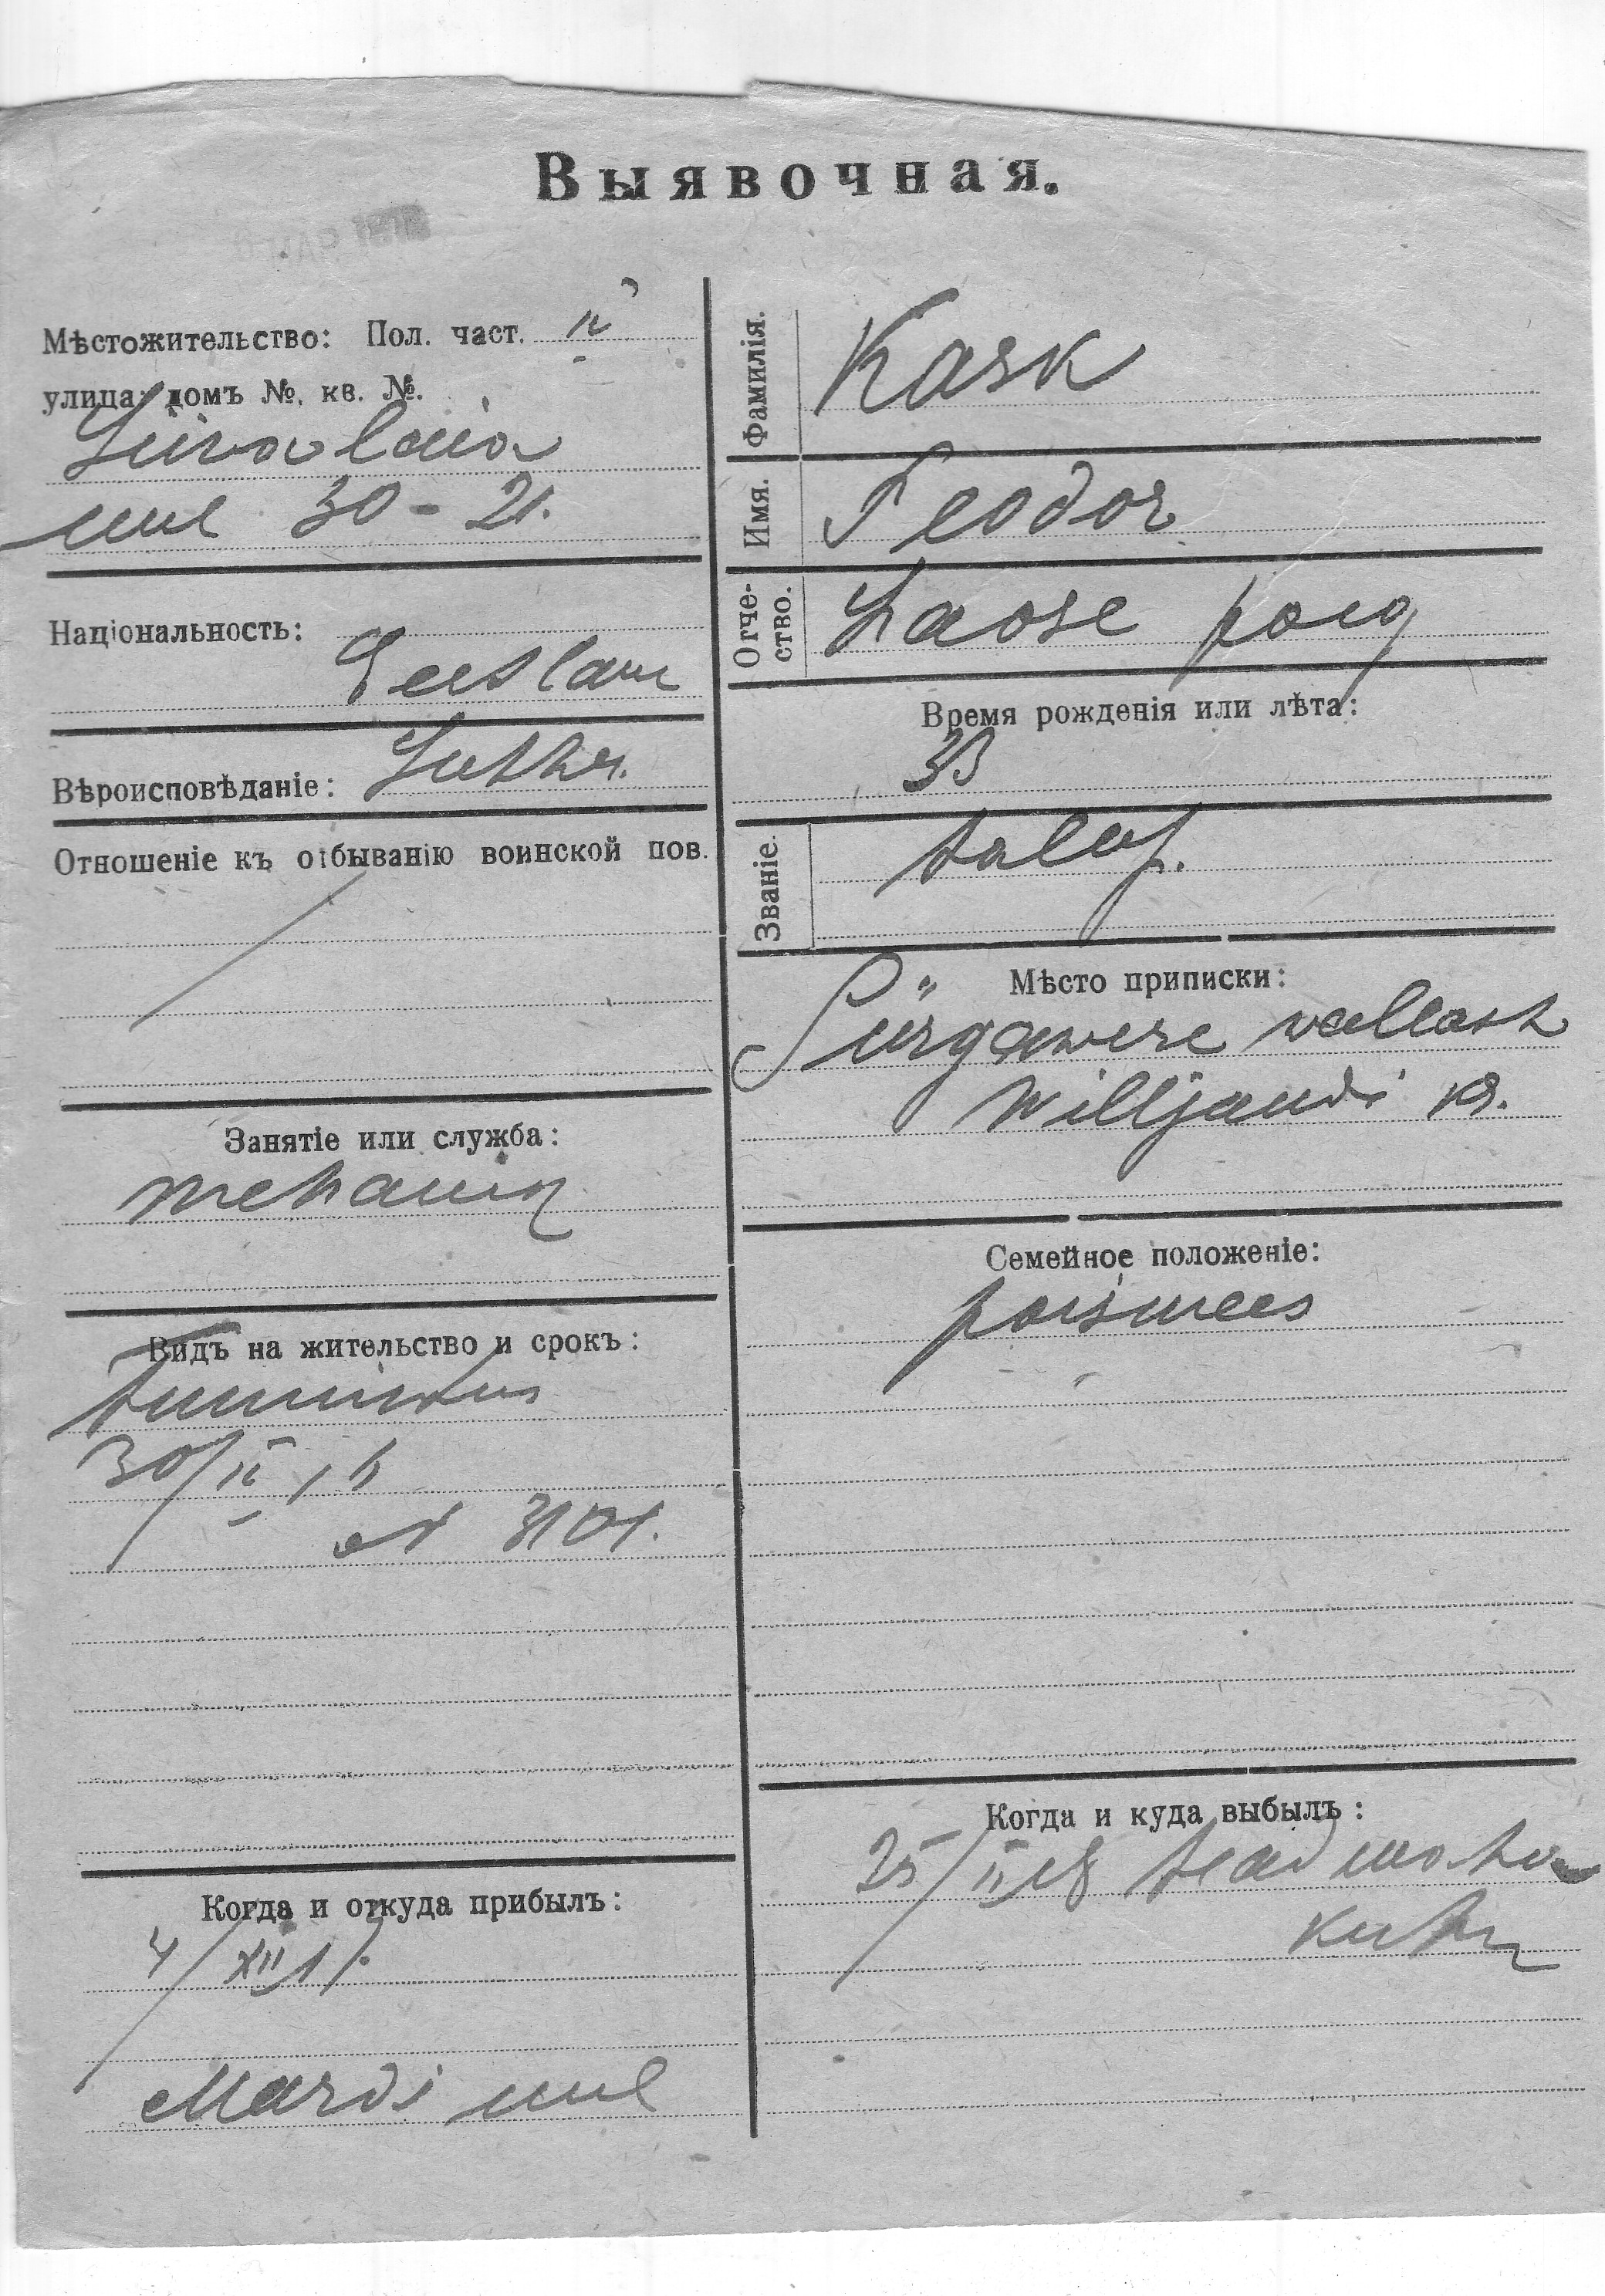 Выявочная.
Мѣстожительство: Пол. част. II
улица: домъ №, кв. №.
uul 30 - 21.
Національность:
Eestlane
Вѣроисповѣданіе: Luther.
Отношеніе къ отбыванію воинской пов.
Занятіе или служба:
mehanik
Видъ на жительство и срокъ:
tunnistus
30/II 16
N 3101.
Когда и откуда прибылъ:
4/XII 17.
Mardi uul
Фамилія. Kask
Имя. Teodor
Отче-
ство. poeg
Время рожденія или лѣта:
33
Званіе. talup.
Мѣсто приписки:
Pürgawere wallast
Willjandi kr.
Семейное положеніе:
poismees
Когда и куда выбылъ:
25/II 18 teadmata
kuhu